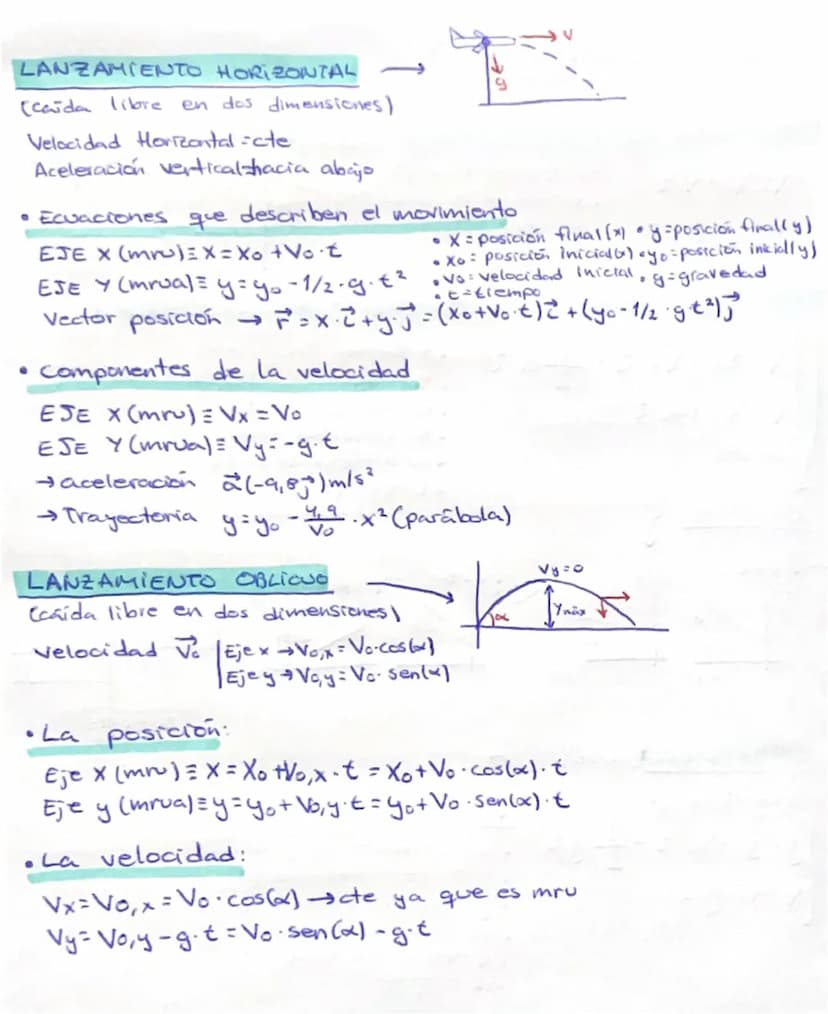 v
LANZAMIENTO HORIZONTAL →
g
(caída libre en dos dimensiones)
Velocidad Horizontal = cte
Aceleración vertical hacia abajo
• Ecuaciones que describen el movimiento
EJE X (mru) ≡ X = X₀ + V₀ · t
• X = posición final (x) • y = posición final (y)
• X₀ = posición inicial (x) • y₀ = posición inicial (y)
EJE Y (mrua) ≡ y = y₀ - 1/2 · g · t²
• V₀ = velocidad inicial • g = gravedad
• t = tiempo
Vector posición → r⃗ = x · i⃗ + y · j⃗ = (X₀ + V₀ · t) i⃗ + (y₀ - 1/2 · g t²) j⃗
• Componentes de la velocidad
EJE X (mru) ≡ Vx = V₀
EJE Y (mrua) ≡ Vy = -g · t
→ aceleración a⃗ (-9,8 j⃗) m/s²
→ Trayectoria y = y₀ - 4,9/V₀ · x² (parábola)
Vy = 0
LANZAMIENTO OBLICUO
α Ymáx
(caída libre en dos dimensiones)
Velocidad V⃗₀ | Eje x → V₀,x = V₀ · cos(α)
| Eje y → V₀,y = V₀ · sen(α)
• La posición:
Eje X (mru) ≡ X = X₀ + V₀,x · t = X₀ + V₀ · cos(α) · t
Eje y (mrua) ≡ y = y₀ + V₀,y · t = y₀ + V₀ · sen(α) · t
• La velocidad:
Vx = V₀,x = V₀ · cos(α) → cte ya que es mru
Vy = V₀,y - g · t = V₀ · sen(α) - g · t